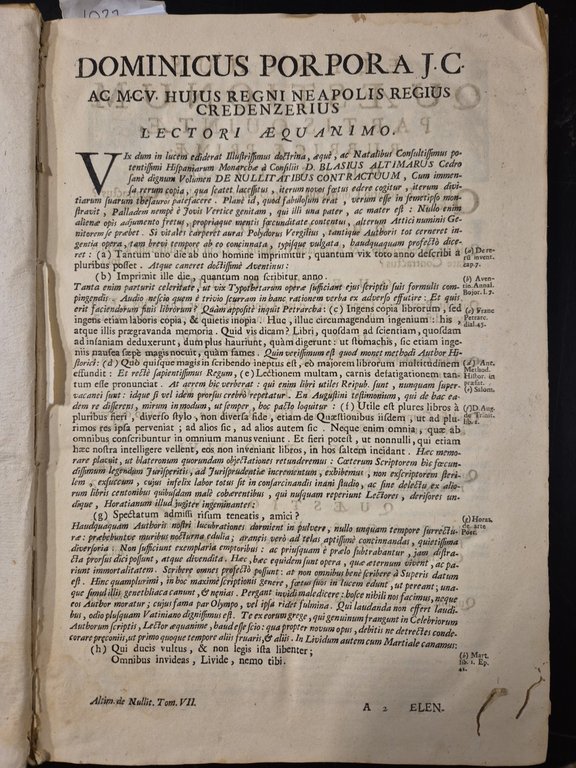 1022
DOMINICUS PORPORA J.C.
AC M.C.V. HUJUS REGNI NEAPOLIS REGIUS
CREDENZERIUS
LECTORI ÆQUANIMO.
VIx dum in lucem ediderat Illustrissimus doctrina, æquè, ac Natalibus Consultissimus po-
tentissimi Hispaniarum Monarchæ à Consiliis D. BLASIUS ALTIMARUS Cedro
sanè dignum Volumen DE NULLITATIBUS CONTRACTUUM, Cum immen-
sa rerum copia, qua scatet lacessitus, iterum novos fœtus edere cogitur, iterum divi-
tiarum suarum thesauros patefacere. Planè id, quod fabulosum erat, verum esse in semetipso mon-
stravit, Palladem nempè è Jovis Vertice genitam, qui illi una pater, ac mater est: Nullo enim
alienæ opis adjumento fretus, propriaque mentis fœcunditate contentus, alterum Attici numinis Ge-
nitorem se præbet. Si vitales carperet auras Polydorus Vergilius, tantique Authoris tot cerneret in-
gentia opera, tam brevi tempore ab eo concinnata, typisque vulgata, haudquaquam profectò dice-
ret: (a) Tantum uno die ab uno homine imprimitur, quantum vix toto anno describi à
pluribus posset. Atque caneret doctissimè Aventinus:
(b) Imprimit ille die, quantum non scribitur anno.
Tanta enim parturit celeritate, ut vix Typothetarum operæ sufficiant ejus scriptis suis formulis com-
pingendis. Audio nescio quem è trivio scurram in hanc rationem verba ex adverso effutire: Et quis
erit faciendorum finis librorum? Quàm appositè inquit Petrarcha: (c) Ingens copia librorum, sed
ingens etiam laboris copia, & quietis inopia. Huc, illuc circumagendum ingenium: his,
atque illis prægravanda memoria. Quid vis dicam? Libri, quosdam ad scientiam, quosdam
ad insaniam deduxerunt, dum plus hauriunt, quàm digerunt: ut stomachis, sic etiam inge-
niis nausea sæpè magis nocuit, quàm fames. Quin verissimum est quod monet methodi Author Hi-
storici: (d) Quò quisque magis in scribendo ineptus est, eò majorem librorum multitudinem
effundit: Et rectè sapientissimus Regum, (e) Lectionem multam, carnis defatigationem tan-
tum esse pronunciat. At aerem hic verberat: qui enim libri utiles Reipub. sunt, nunquam super-
vacanei sunt: idque si vel idem prorsus crebrò repetatur. En Augustini testimonium, qui de hac ea-
dem re disserens, mirum in modum, ut semper, hoc pacto loquitur: (f) Utile est plures libros à
pluribus fieri, diverso stylo, non diversa fide, etiam de Quæstionibus iisdem, ut ad plu-
rimos res ipsa perveniat; ad alios sic, ad alios autem sic. Neque enim omnia, quæ ab
omnibus conscribuntur in omnium manus veniunt. Et fieri potest, ut nonnulli, qui etiam
hæc nostra intelligere vellent, eos non inveniant libros, in hos saltem incidant. Hæc memo-
rare placuit, ut blateronum quorundam objectationes retunderemus: Cæterum Scriptorem hic fœcun-
dissimum legendum Jurisperitis, ad Jurisprudentiæ incrementum, exhibemus, non exscriptorem steri-
lem, exsuccum, cujus infelix labor totus sit in consarcinandis inani studio, ac sine delectu ex alio-
rum libris centonibus quibusdam malè cohærentibus, qui nusquam reperiunt Lectores, derisores un-
dique, Horatianum illud jugiter ingeminantes:
(g) Spectatum admissi risum teneatis, amici?
Haudquaquam Authoris nostri lucubrationes dormient in pulvere, nullo unquam tempore surrectu-
ræ: præbebuntve muribus nocturna edulia; araneis verò ad telas aptissimè concinnandas, quietissima
diversoria: Non sufficiunt exemplaria emptoribus: ac priusquam è prælo subtrahantur, jam distra-
cta prorsus dici possunt, atque divendita. Hæc, hæc equidem sunt opera, quæ æternum vivent, ac pa-
riunt immortalitatem. Scribere omnes profectò possunt: at non omnibus benè scribere à Superis datum
est. Hinc quamplurimi, in hoc maximè scriptionis genere, fœtus suos in lucem edunt, ut pereant; una-
que simul illis genethliaca canunt, & nenias. Pergant invidi maledicere: hosce nihili nos facimus, neque
eos Author moratur; cujus fama par Olympo, vel ipsa ridet fulmina. Qui laudanda non effert laudi-
bus, odio plusquam Vatiniano dignissimus est. Te ex eorum grege, qui genuinum frangunt in Celebriorum
Authorum scriptis, Lector æquanime, haud esse scio: qua propter novum opus, debitis ne detrectes conde-
corare præconiis, ut primo quoque tempore aliis fruaris, & aliis. In Lividum autem cum Martiale canamus:
(h) Qui ducis vultus, & non legis ista libenter;
Omnibus invideas, Livide, nemo tibi.
(a) De re-
rū invent.
cap. 7.
(b) Aven-
tin. Annal.
Bojor. l. 7.
(c) Franc
Petrarc.
dial. 43.
(d) Aut.
Method.
Histor. in
præfat.
(e) Salom.
(f) D. Aug.
de Trinit.
lib. 1.
(g) Horat.
de arte
Poet.
(h) Mart.
lib. 1. Ep.
41.
Altim. de Nullit. Tom. VII.
A 2
ELEN.